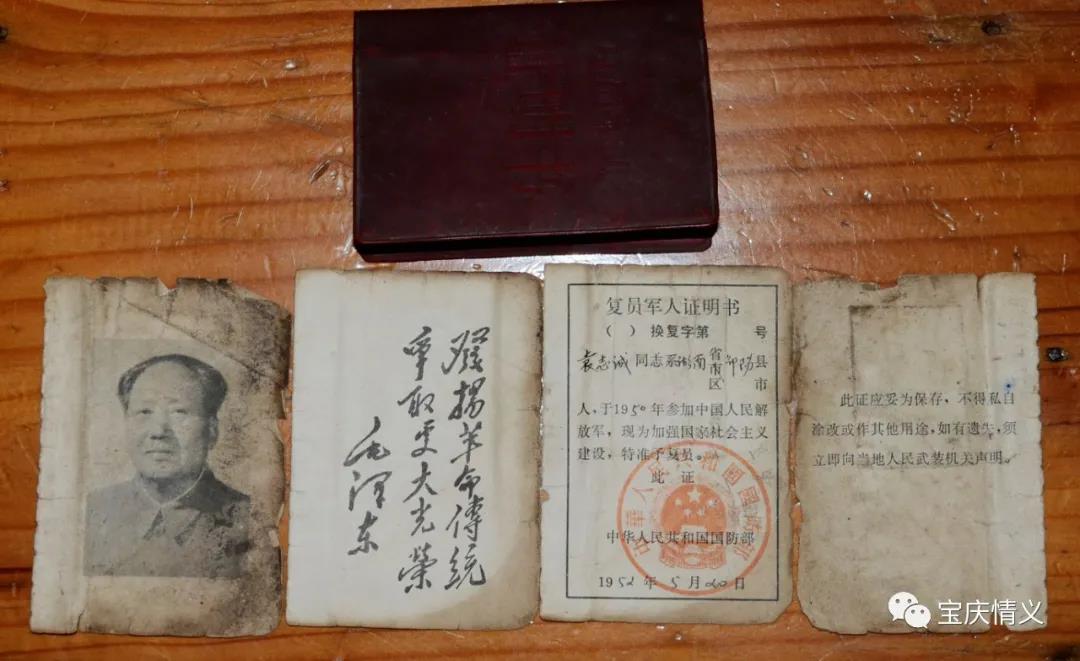 發揚革命傳統
爭取更大光榮
毛澤东
复员军人证明书
（ ）换复字第 号
袁志诚同志系湖南省市区邵阳县市
人，于1950年参加中国人民解
放军，现为加强国家社会主义
建设，特准予复员。
此 证
中华人民共和国国防部
1952年5月20日
中華人民共和國國防部
此证应妥为保存，不得私自
涂改或作其他用途，如有遗失，须
立即向当地人民武装机关声明。
宝庆情义